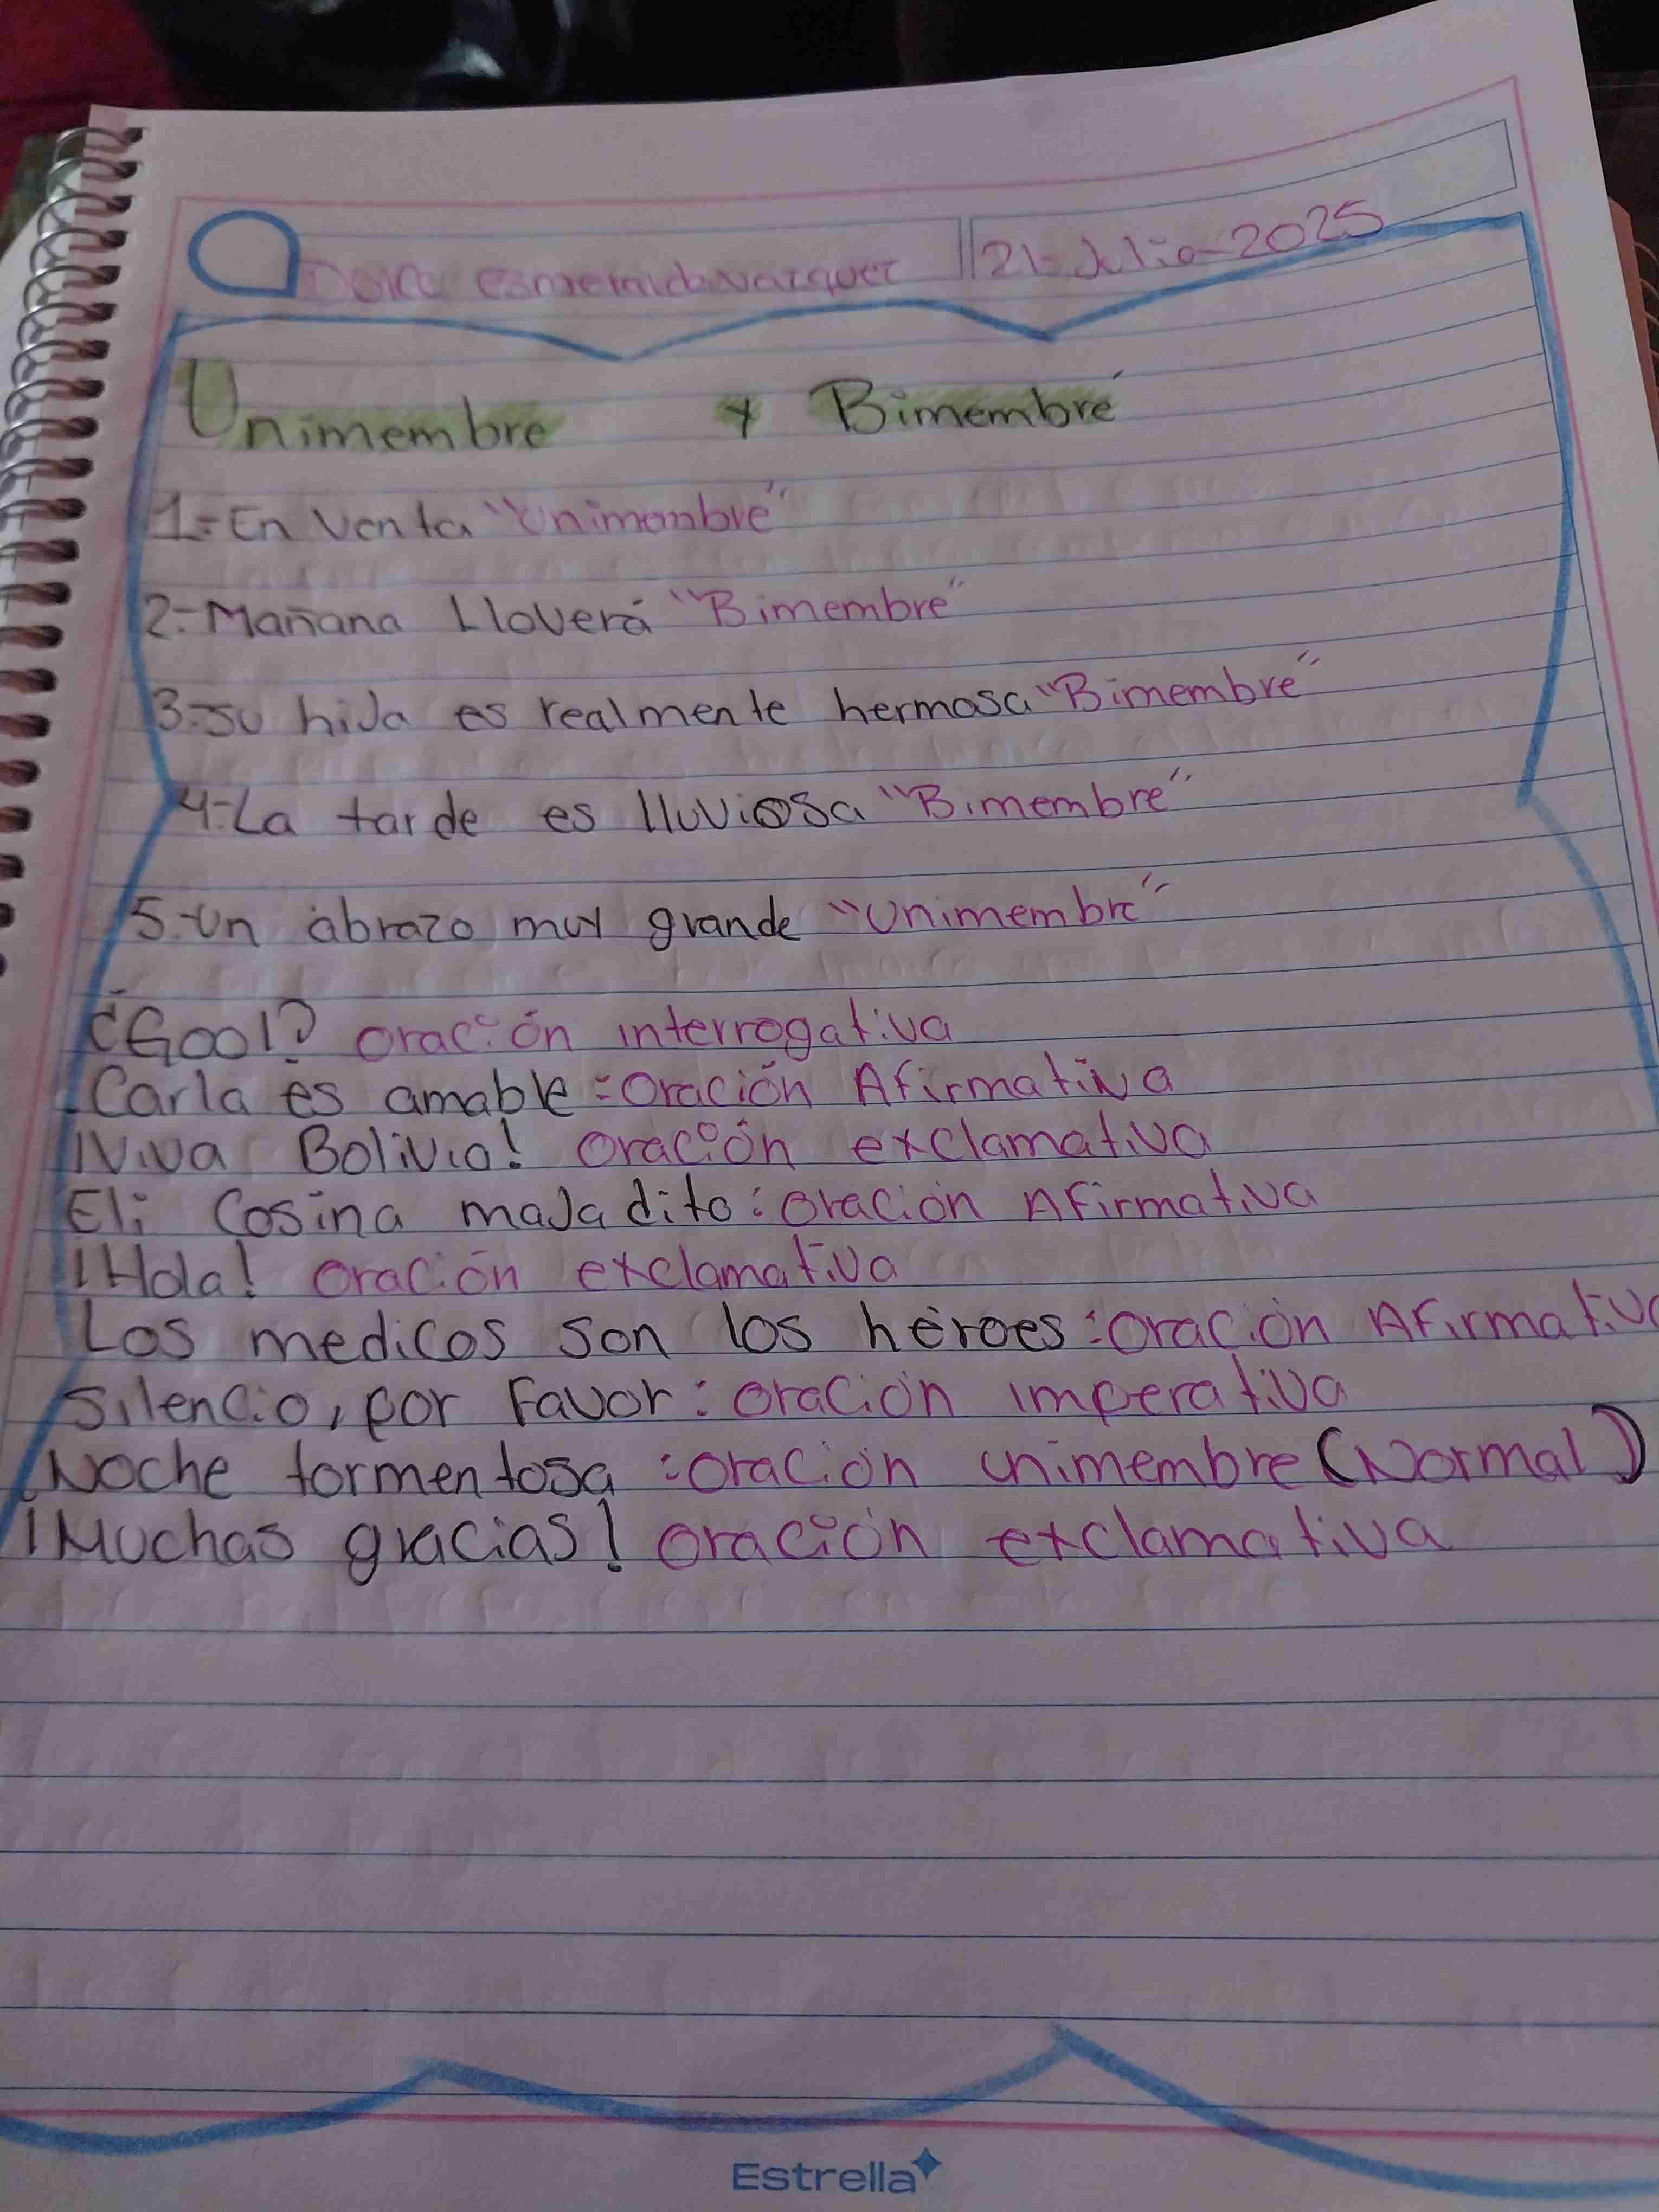 esmeralda vazquez 21-Julio-2025
Unimembre y Bimembre
1.-En Venta "Unimembre"
2.-Mañana Lloverá "Bimembre"
3.-su hiJa es realmente hermosa "Bimembre"
4.-La tarde es lluviosa "Bimembre"
5.-un abrazo muy grande "unimembre"
¿Gool? oración interrogativa
Carla es amable:oración Afirmativa
¡Viva Bolivia! oración exclamativa
Eli Cosina maJadito:oración Afirmativa
¡Hola! oración exclamativa
Los medicos son los héroes:oración Afirmativa
silencio, por favor: oración imperativa
Noche tormentosa :oración unimembre (Normal)
¡Muchas gracias! oración exclamativa
Estrella